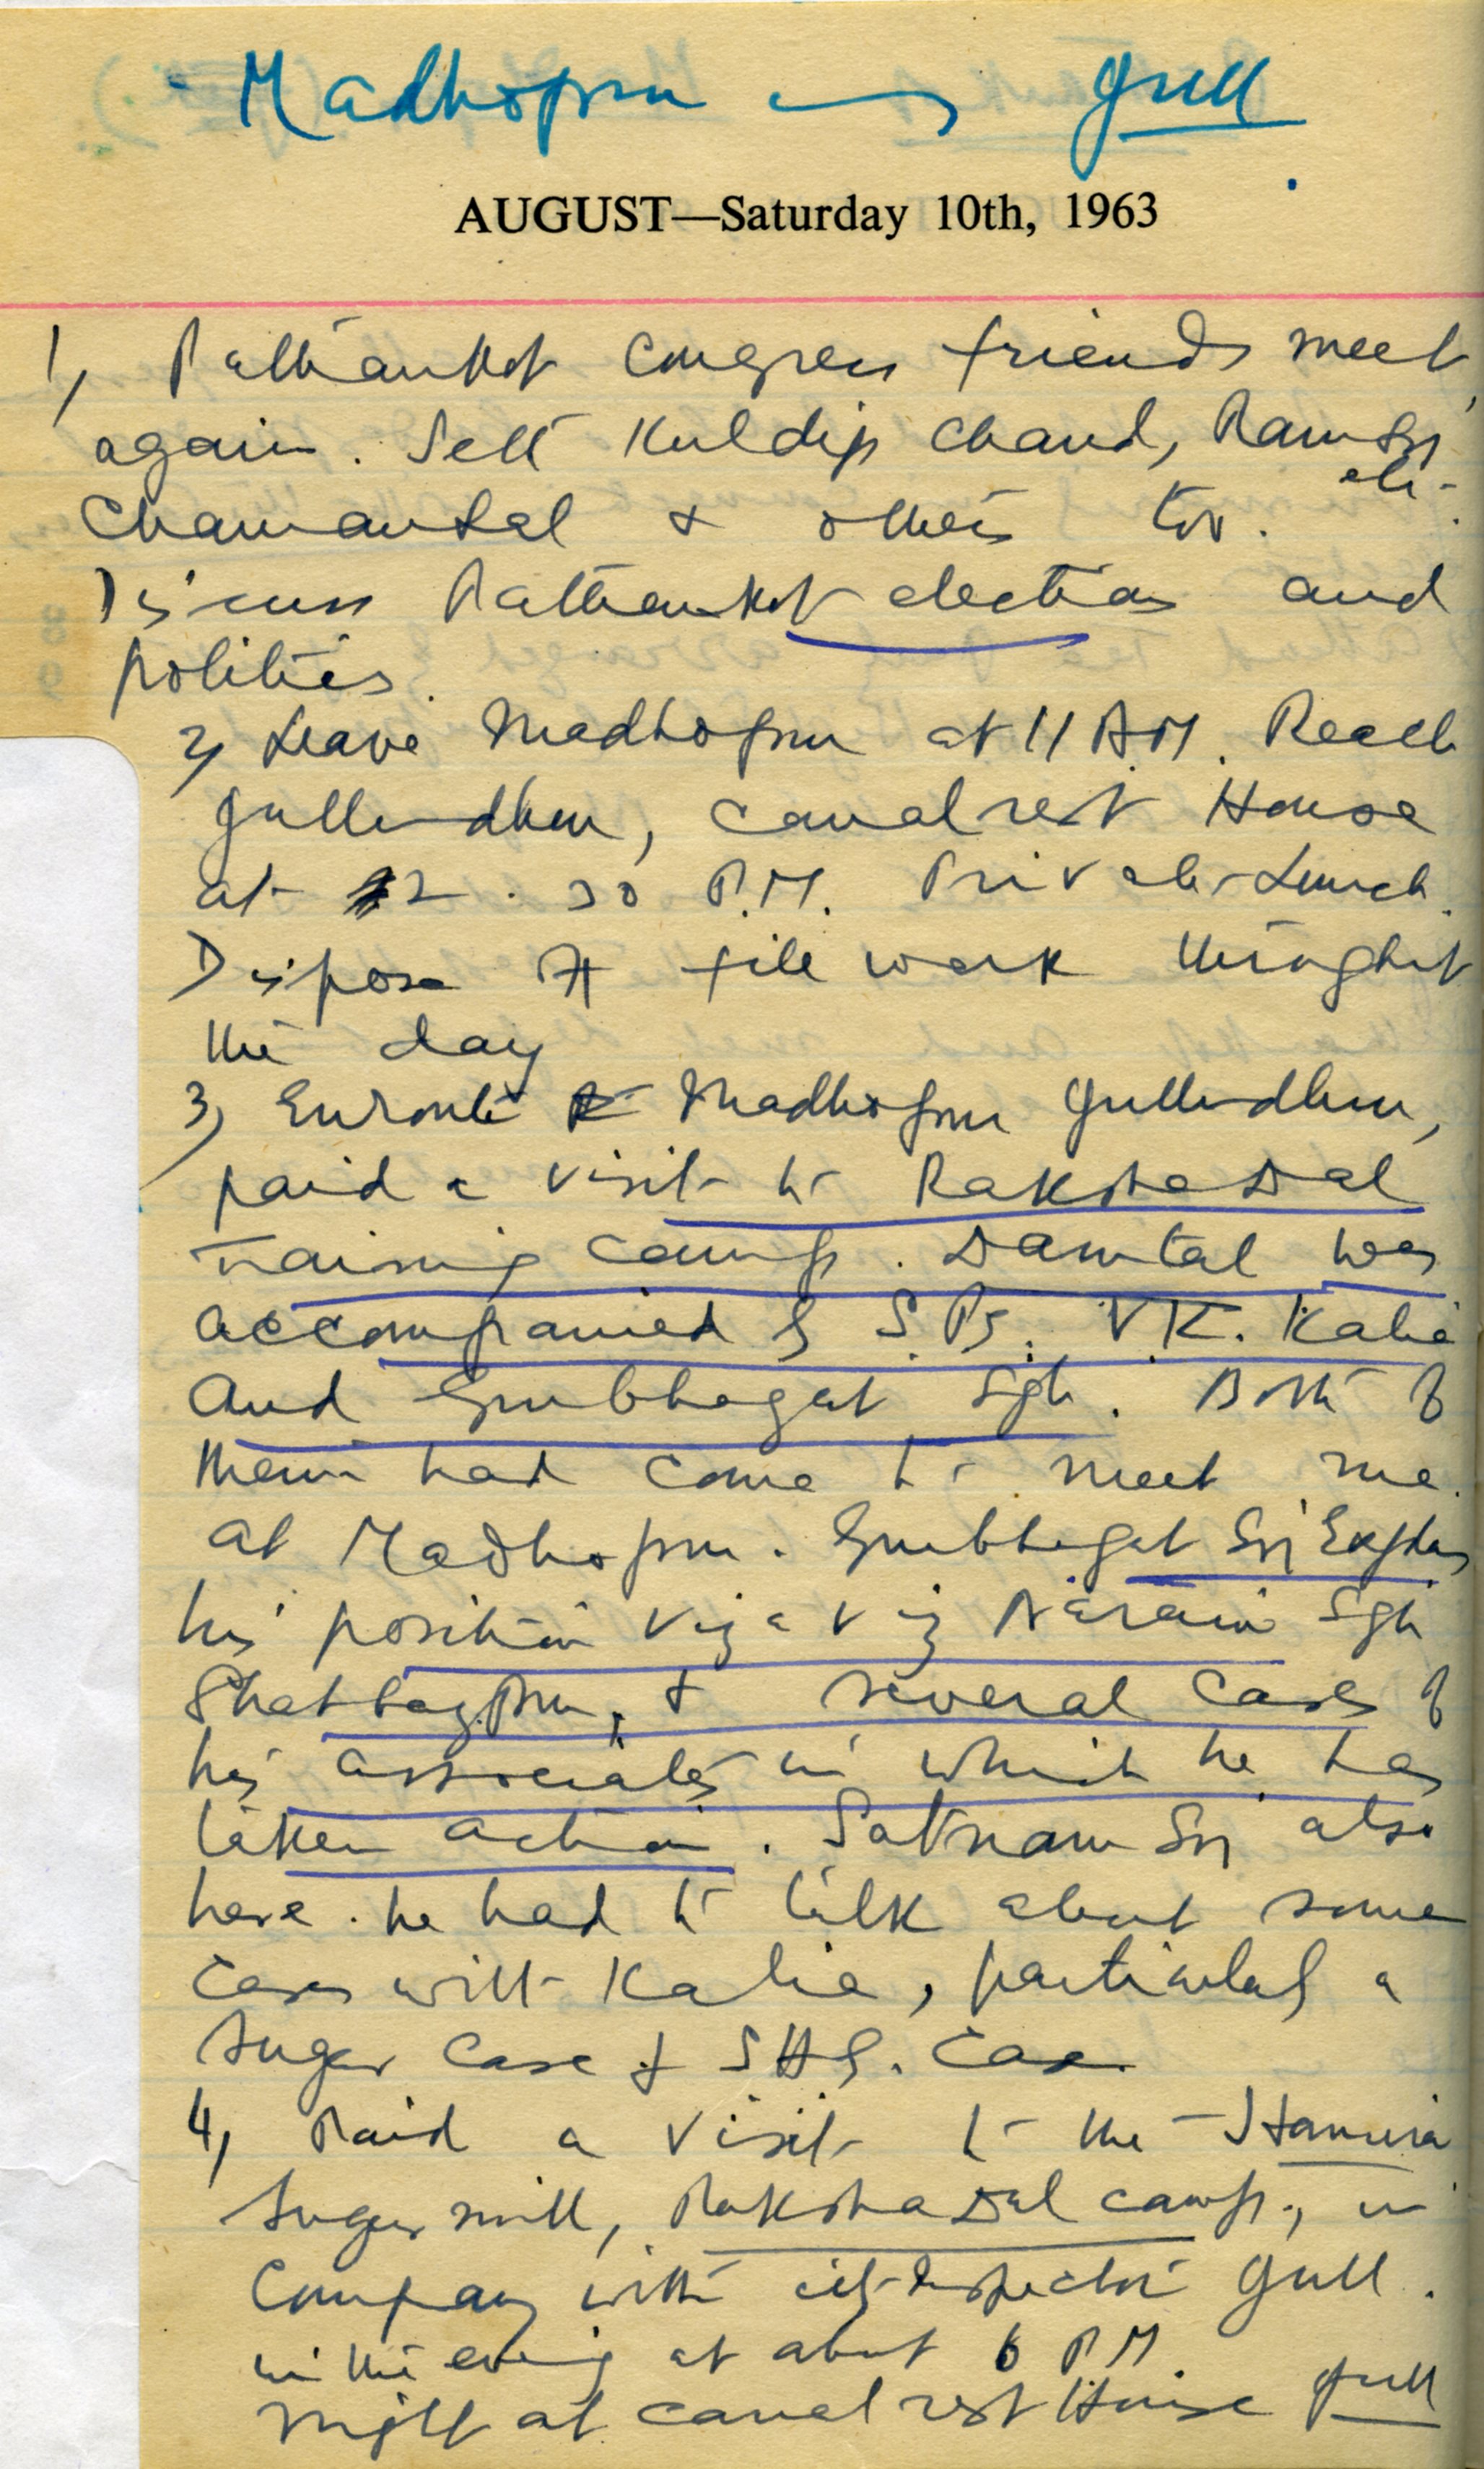 Madhopur — Jull
AUGUST—Saturday 10th, 1963
1, Pathankot Congress friends meet
again. Seth Kuldip Chand, Ram
Chamanlal & others too. etc.
Discuss Pathankot election and
politics.
2, Leave Madhopur at 11 A.M. Reach
Jullundhur, canal rest House
at 12.30 P.M. Private Lunch.
Dispose of file work throughout
the day
3, Enroute Madhopur Jullundhur,
paid a visit to Raksha Dal
Training camp. Damtal was
accompanied by S.Ps. V.K. Kalia
and Gurbhagat Sgh. Both of
them had come to meet me.
at Madhopur. Gurbhagat Sgh Explains
his position viz a viz Narain Sgh
Shahbazpuri, & several cases of
his associates in which he has
taken action. Satnam Sgh also
here. he had to talk about some
cases with Kalia, particularly a
Sugar Case & S.H.G. Case.
4, Paid a visit to the Hamira
Sugar mill, Raksha Dal camp, in
company with city Inspector Jull.
in the evening at about 6 P.M.
Night at canal rest House Jull